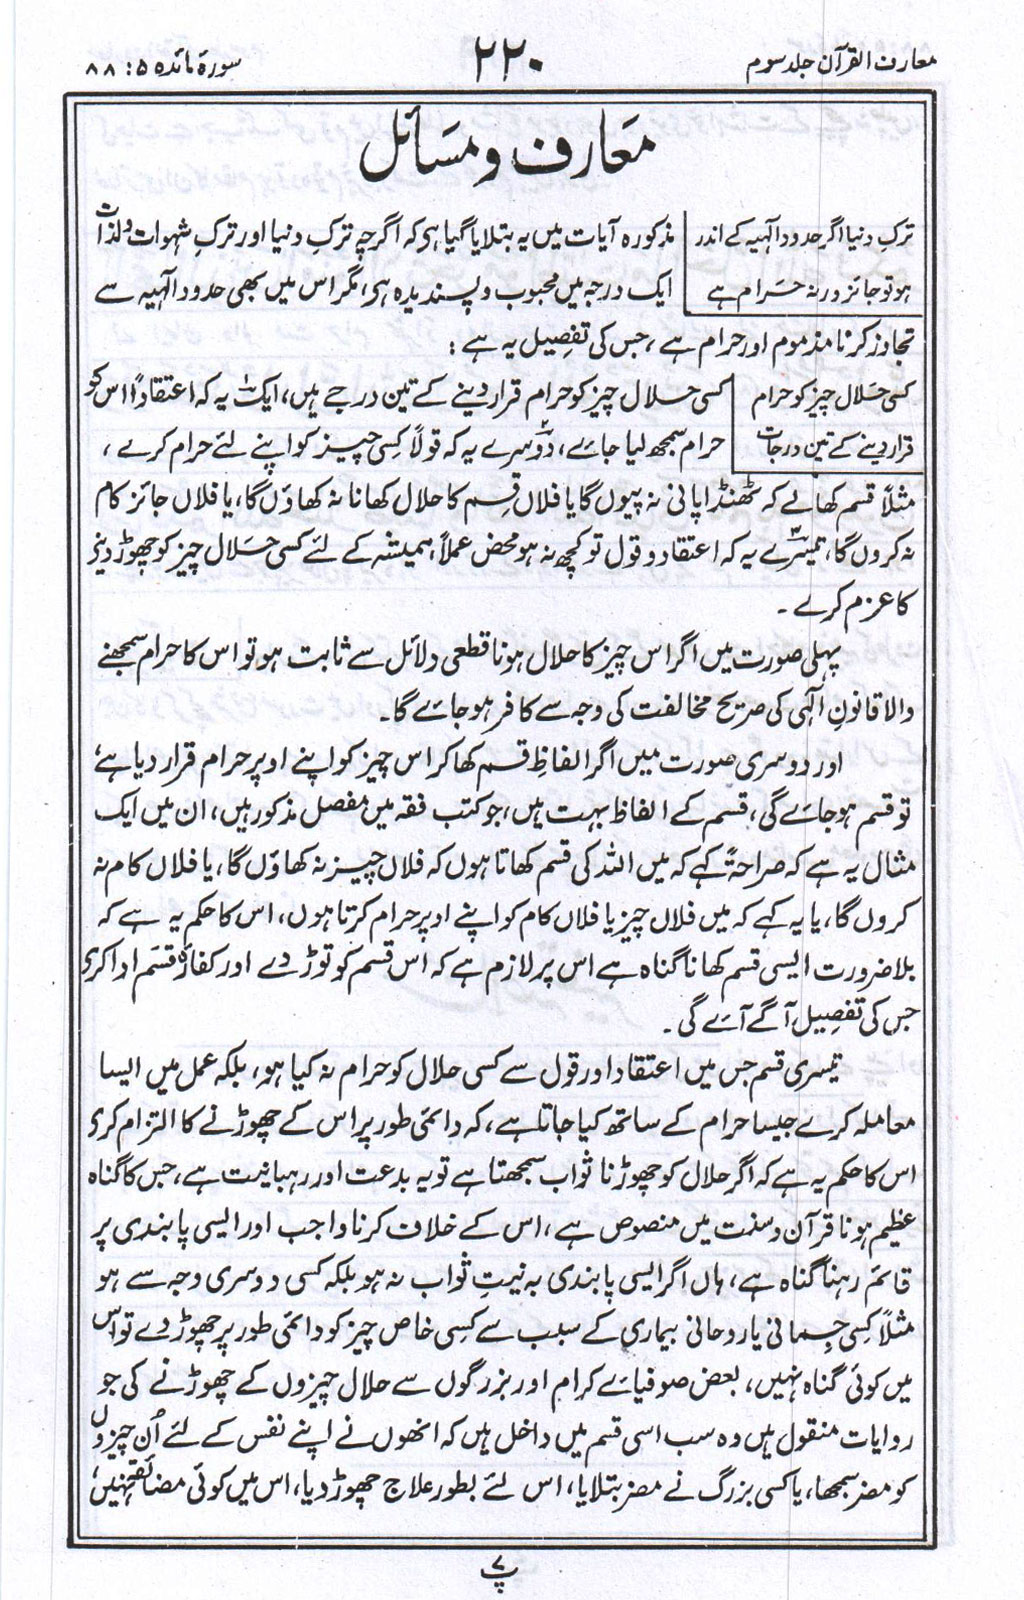 معارف القرآن جلد سوم
۲۲۰
سورۂ مائدہ ۵: ۸۸
معارف و مسائل
ترکِ دنیا اگر حدودِ الٰہیہ کے اندر
ہو تو جائز ورنہ حرام ہے
مذکورہ آیات میں یہ بتلایا گیا ہی کہ اگرچہ ترکِ دنیا اور ترکِ شہوات و لذات
ایک درجہ میں محبوب و پسندیدہ ہی، مگر اس میں بھی حدودِ الٰہیہ سے
تجاوز کرنا مذموم اور حرام ہے، جس کی تفصیل یہ ہے :
کسی حلال چیز کو حرام
قرار دینے کے تین درجات
کسی حلال چیز کو حرام قرار دینے کے تین درجے ہیں، ایک یہ کہ اعتقاداً اس کو
حرام سمجھ لیا جائے، دوسرے یہ کہ قولاً کسی چیز کو اپنے لئے حرام کرے ،
مثلاً قسم کھالے کہ ٹھنڈا پانی نہ پیوں گا یا فلاں قسم کا حلال کھانا نہ کھاؤں گا، یا فلاں جائز کام
نہ کروں گا، تیسرے یہ کہ اعتقاد و قول تو کچھ نہ ہو محض عملاً ہمیشہ کے لئے کسی حلال چیز کو چھوڑ دینے
کا عزم کرے ۔
پہلی صورت میں اگر اس چیز کا حلال ہونا قطعی دلائل سے ثابت ہو تو اس کا حرام سمجھنے
والا قانونِ الٰہی کی صریح مخالفت کی وجہ سے کافر ہو جائے گا۔
اور دوسری صورت میں اگر الفاظِ قسم کھا کر اس چیز کو اپنے اوپر حرام قرار دیا ہے،
تو قسم ہو جائے گی، قسم کے الفاظ بہت ہیں، جو کتب فقہ میں مفصل مذکور ہیں، ان میں ایک
مثال یہ ہے کہ صراحۃً کہے کہ میں اللہ کی قسم کھاتا ہوں کہ فلاں چیز نہ کھاؤں گا، یا فلاں کام نہ
کروں گا، یا یہ کہے کہ میں فلاں چیز یا فلاں کام کو اپنے اوپر حرام کرتا ہوں، اس کا حکم یہ ہے کہ
بلا ضرورت ایسی قسم کھانا گناہ ہے اس پر لازم ہے کہ اس قسم کو توڑ دے اور کفارۂ قسم ادا کری
جس کی تفصیل آگے آئے گی ۔
تیسری قسم جس میں اعتقاد اور قول سے کسی حلال کو حرام نہ کیا ہو، بلکہ عمل میں ایسا
معاملہ کرے جیسا حرام کے ساتھ کیا جاتا ہے، کہ دائمی طور پر اس کے چھوڑنے کا التزام کری
اس کا حکم یہ ہے کہ اگر حلال کو چھوڑنا ثواب سمجھتا ہے تو یہ بدعت اور رہبانیت ہے، جس کا گناہ
عظیم ہونا قرآن و سنت میں منصوص ہے، اس کے خلاف کرنا واجب اور ایسی پابندی پر
قائم رہنا گناہ ہے، ہاں اگر ایسی پابندی بہ نیتِ ثواب نہ ہو بلکہ کسی دوسری وجہ سے ہو
مثلاً کسی جسمانی یا روحانی بیماری کے سبب سے کسی خاص چیز کو دائمی طور پر چھوڑ دے تو اس
میں کوئی گناہ نہیں، بعض صوفیائے کرام اور بزرگوں سے حلال چیزوں کے چھوڑنے کی جو
روایات منقول ہیں وہ سب اسی قسم میں داخل ہیں کہ انھوں نے اپنے نفس کے لئے اُن چیزوں
کو مضر سمجھا، یا کسی بزرگ نے مضر بتلایا، اس لئے بطور علاج چھوڑ دیا، اس میں کوئی مضائقہ نہیں،
پ ۷